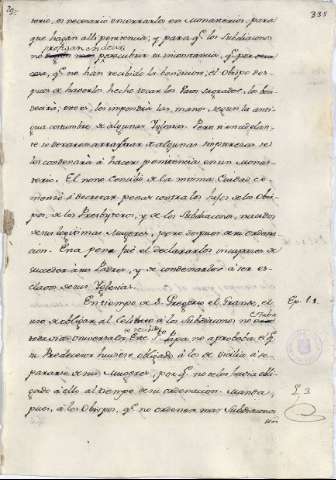 29.
335
terio, es necesario encerrarlos en Monasterios, para
que hagan alli penitencia; y para qe los Subdiaconos
prosigan en decir
no perpetuar su incontinencia,
que no han recibido la bendicion; el Obispo des-
pues de haverles hecho tocar los Vasos Sagrados, los ben-
decirá; esto es, les impondrá las manos segun la anti-
gua costumbre de algunas Yglesias. Pero si en adelan-
te se dexaren arrastrar de algunas impurezas se
les condenará à hacer penitencia en un Monas-
terio. El nono Concilio de la misma Ciudad, co-
menzó à decretar penas contra los hijos de los Obis-
pos, de los Presbyteros, y de los Subdiaconos, nacidos
de sus legitimas Mugeres, pero despues de su ordena-
cion. Esta pena fue el declararlos incapaces de
succeder à sus Padres, y de condenarlos à ser es-
clavos de sus Yglesias.
En tiempo de S. Gregorio el Grande, el
uso de obligar al Celibato à los Subdiaconos no
recivido
universalmte. Este Sto. Papa no aprobaba el qe
su Predecesor huviese obligado à los de Sicilia à se-
pararse de sus Mugeres, por qe no se les havia obli-
gado à ello al tiempo de su ordenacion. Manda,
pues, à los Obispos, qe no ordenen mas Subdiaconos
sin
Ep. 42.